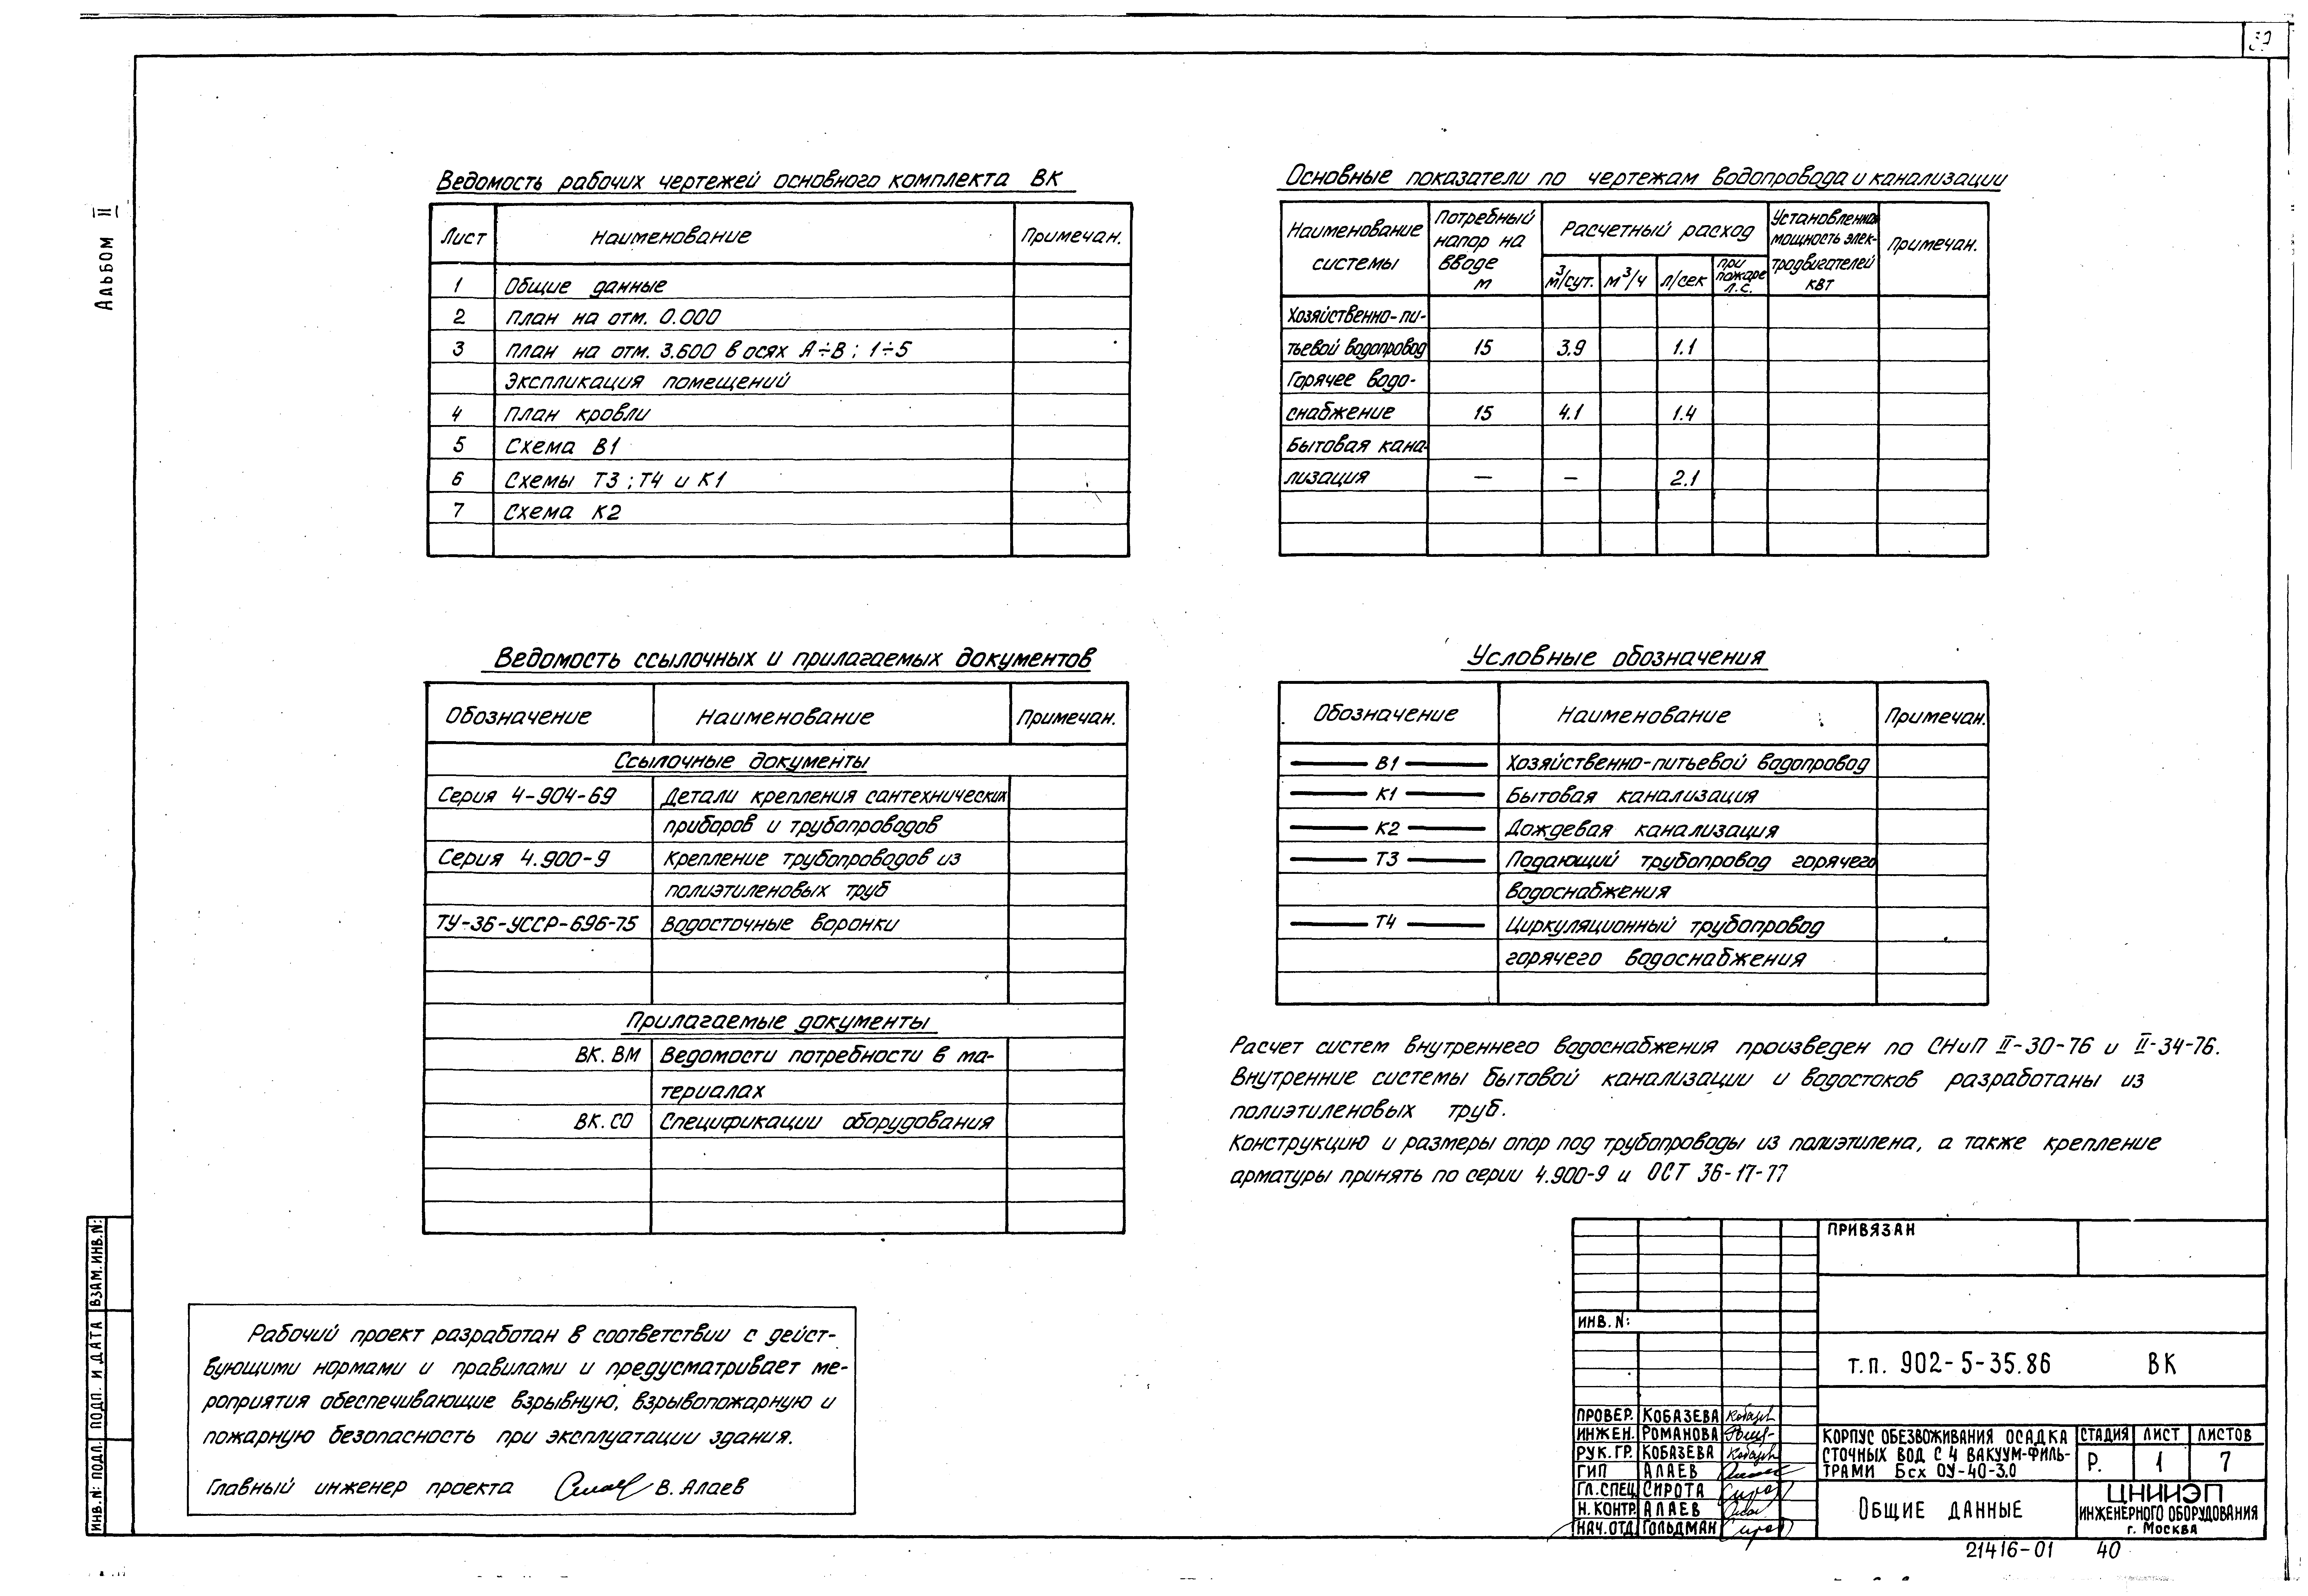 Альбом II
Ведомость рабочих чертежей основного комплекта ВК
Лист Наименование Примечан.
1 Общие данные
2 План на отм. 0.000
3 План на отм. 3.600 в осях А÷В; 1÷5
Экспликация помещений
4 План кровли
5 Схема В1
6 Схемы Т3; Т4 и К1
7 Схема К2
Основные показатели по чертежам водопровода и канализации
Наименование системы Потребный напор на вводе м Расчетный расход Установленная мощность электродвигателей квт Примечан.
м³/сут. м³/ч л/сек при пожаре л.с.
Хозяйственно-пи-
тьевой водопровод 15 3.9 1.1
Горячее водо-
снабжение 15 4.1 1.4
Бытовая кана-
лизация — — 2.1
Ведомость ссылочных и прилагаемых документов
Обозначение Наименование Примечан.
Ссылочные документы
Серия 4-904-69 Детали крепления сантехнических
приборов и трубопроводов
Серия 4.900-9 Крепление трубопроводов из
полиэтиленовых труб
ТУ-36-УССР-696-75 Водосточные воронки
Прилагаемые документы
ВК. ВМ Ведомости потребности в ма-
териалах
ВК. СО Спецификации оборудования
Условные обозначения
Обозначение Наименование Примечан.
В1 Хозяйственно-питьевой водопровод
К1 Бытовая канализация
К2 Дождевая канализация
Т3 Подающий трубопровод горячего
водоснабжения
Т4 Циркуляционный трубопровод
горячего водоснабжения
Расчет систем внутреннего водоснабжения произведен по СНиП II-30-76 и II-34-76.
Внутренние системы бытовой канализации и водостоков разработаны из
полиэтиленовых труб.
Конструкцию и размеры опор под трубопроводы из полиэтилена, а также крепление
арматуры принять по серии 4.900-9 и ОСТ 36-17-77
Рабочий проект разработан в соответствии с дейст-
вующими нормами и правилами и предусматривает ме-
роприятия обеспечивающие взрывную, взрывопожарную и
пожарную безопасность при эксплуатации здания.
Главный инженер проекта В. Алаев
ИНВ. N: ПОДЛ. ПОДП. И ДАТА ВЗАМ. ИНВ. N:
ПРИВЯЗАН
ИНВ. N:
т.п. 902-5-35.86 ВК
ПРОВЕР. КОБАЗЕВА
ИНЖЕН. РОМАНОВА
РУК. ГР. КОБАЗЕВА
ГИП АЛАЕВ
ГЛ. СПЕЦ СИРОТА
Н. КОНТР. АЛАЕВ
НАЧ. ОТД ГОЛЬДМАН
КОРПУС ОБЕЗВОЖИВАНИЯ ОСАДКА
СТОЧНЫХ ВОД С 4 ВАКУУМ-ФИЛЬ-
ТРАМИ Бсх ОУ-40-3.0
СТАДИЯ ЛИСТ ЛИСТОВ
Р. 1 7
ОБЩИЕ ДАННЫЕ
ЦНИИЭП
ИНЖЕНЕРНОГО ОБОРУДОВАНИЯ
г. МОСКВА
21416-01 40